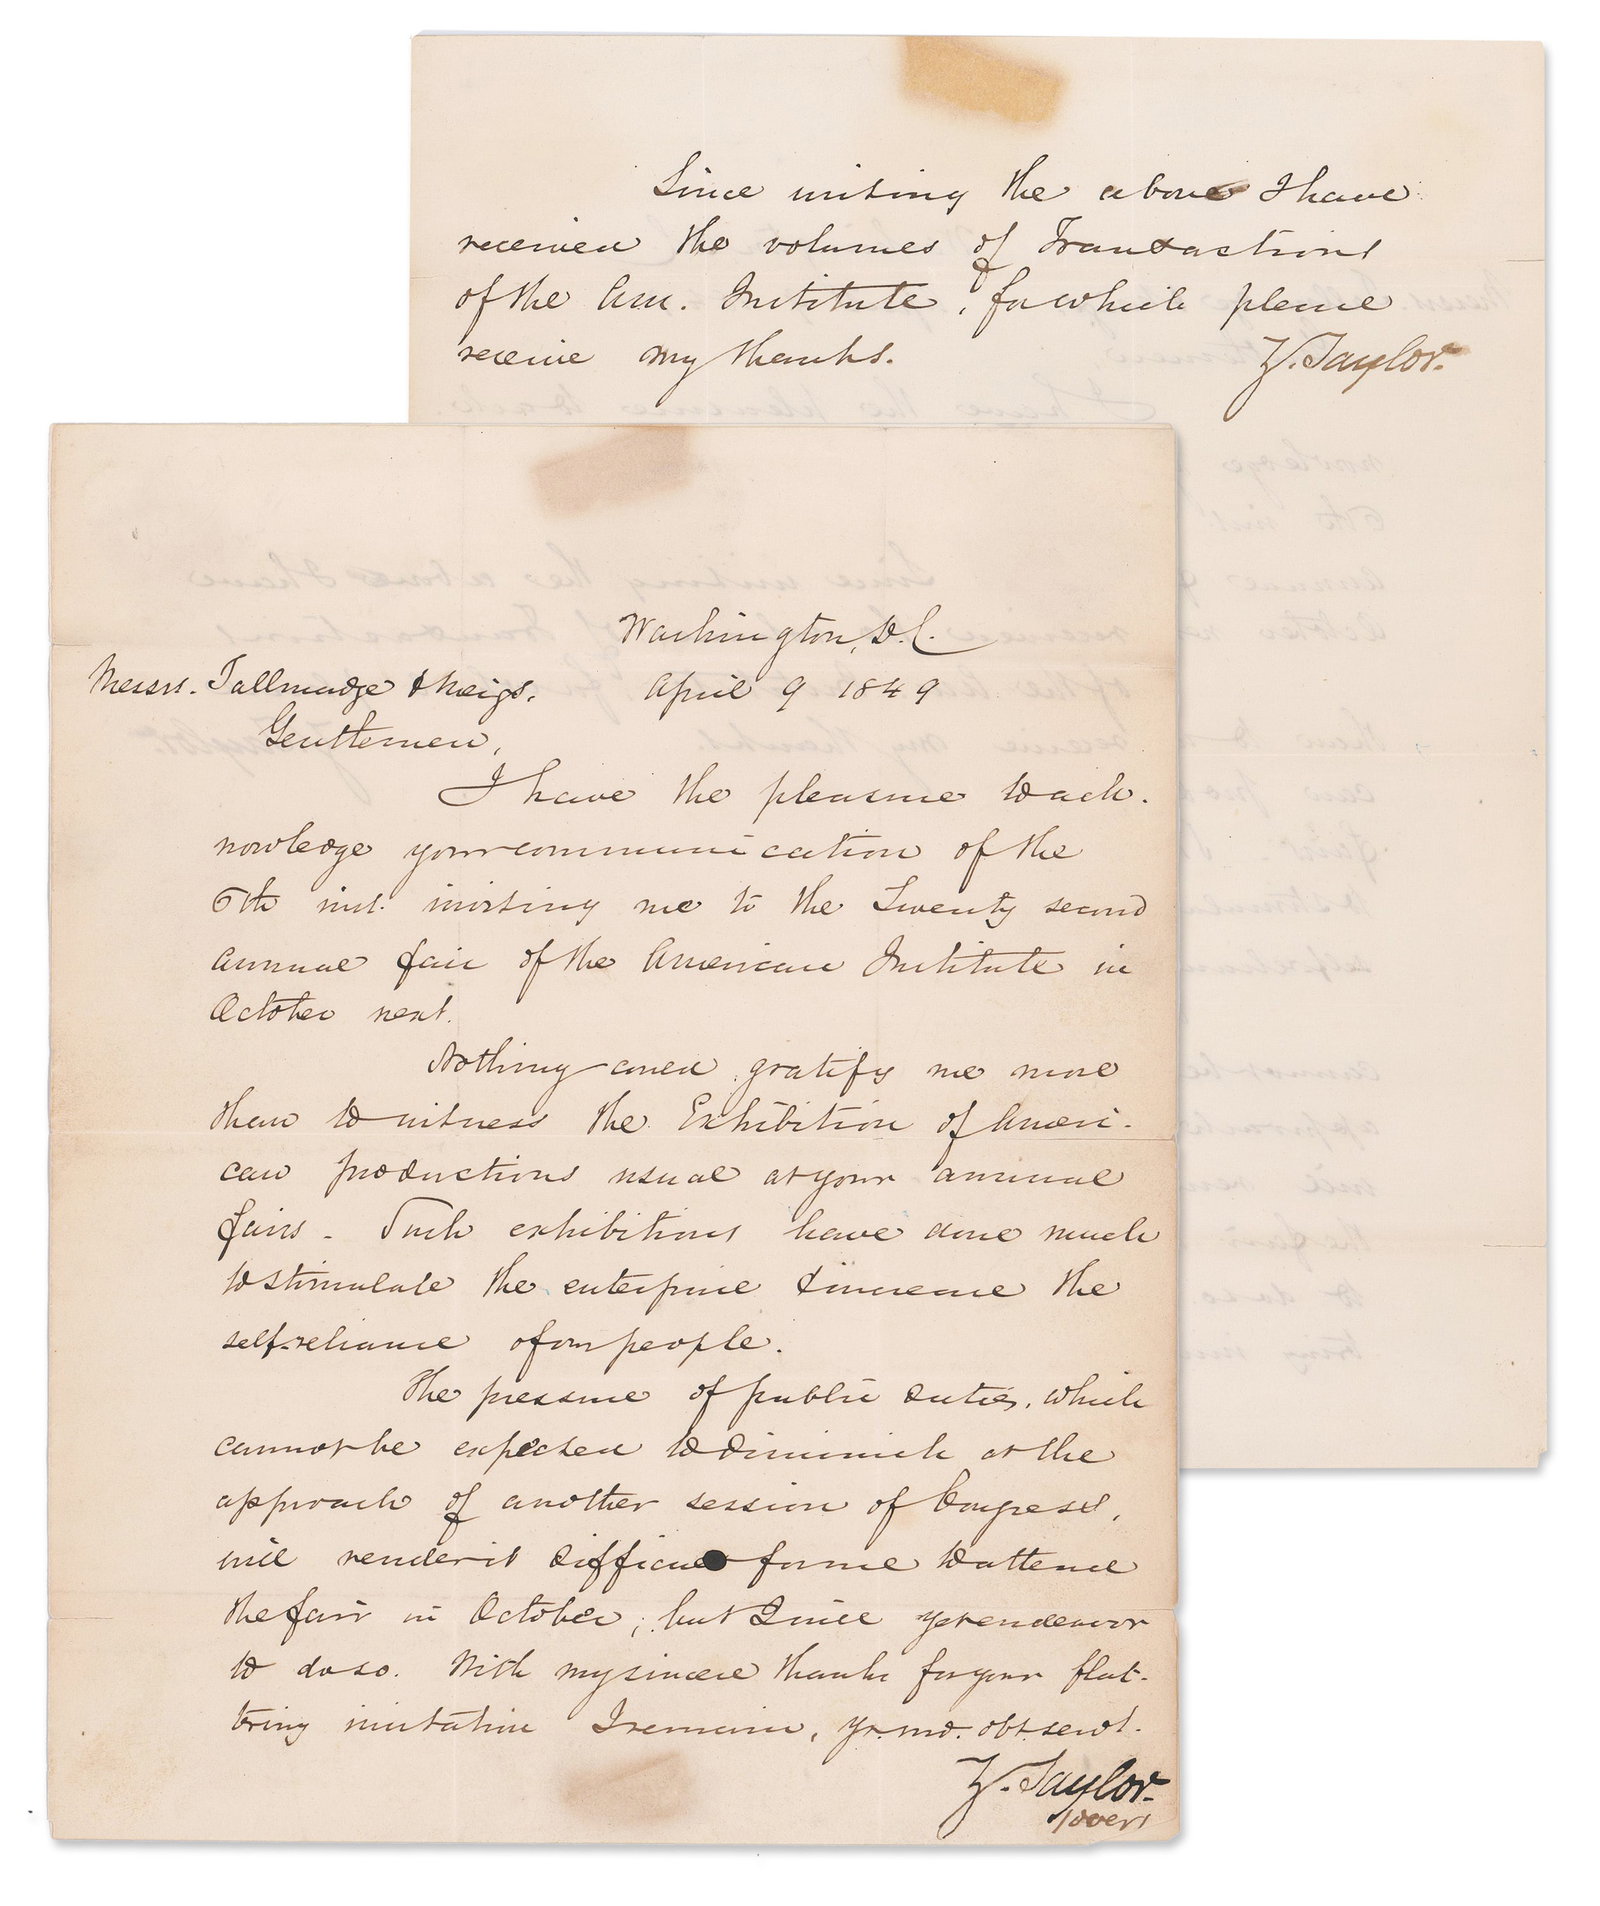 Washington, D.C.
April 9 1849
Messrs. Tallmadge & Meigs.
Gentlemen,
I have the pleasure to ack-
nowledge your communication of the
6th inst. inviting me to the Twenty second
annual fair of the American Institute in
October next.
Nothing could gratify me more
than to witness the Exhibition of Ameri-
can productions usual at your annual
fairs - Such exhibitions have done much
to stimulate the enterprise & increase the
self-reliance of our people.
The pressure of public duties, which
cannot be expected to diminish at the
approach of another session of Congress,
will render it difficult for me to attend
the fair in October; but I will yet endeavor
to do so. With my sincere thanks for your flat-
tring invitation I remain, yr. mo. obt. servt.
Z. Taylor.
(over)
Since writing the above I have
received the volumes of Transactions
of the Am. Institute, for which please
receive my thanks.
Z. Taylor.